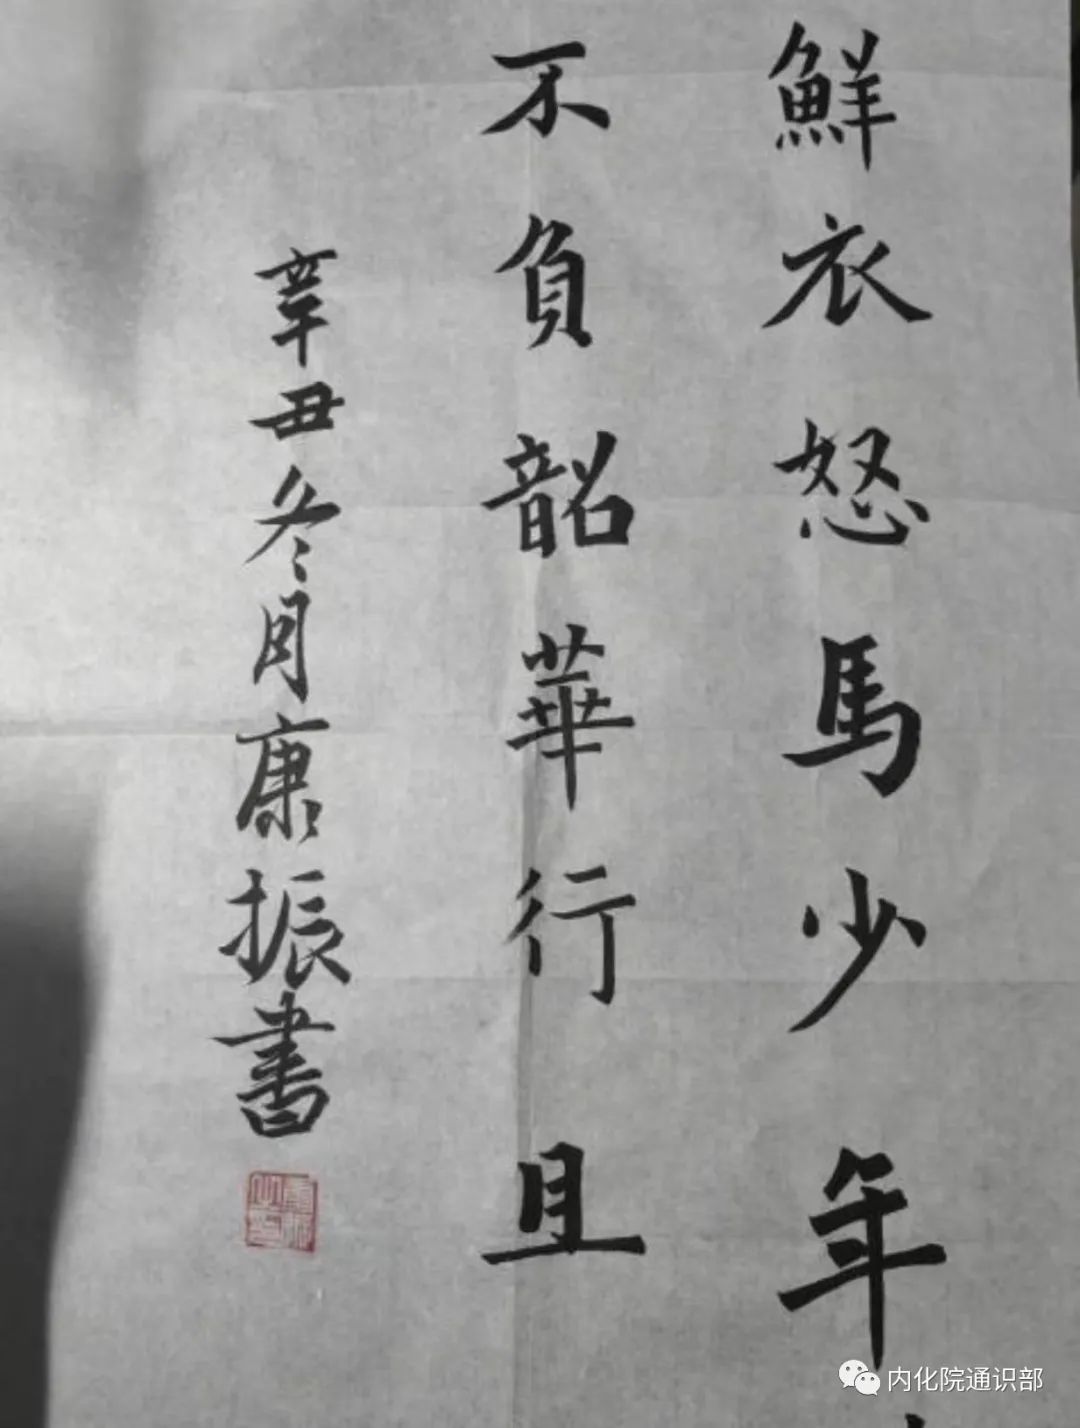 鮮衣怒馬少年
不負韶華行且
辛丑冬月康振書
内化院通识部